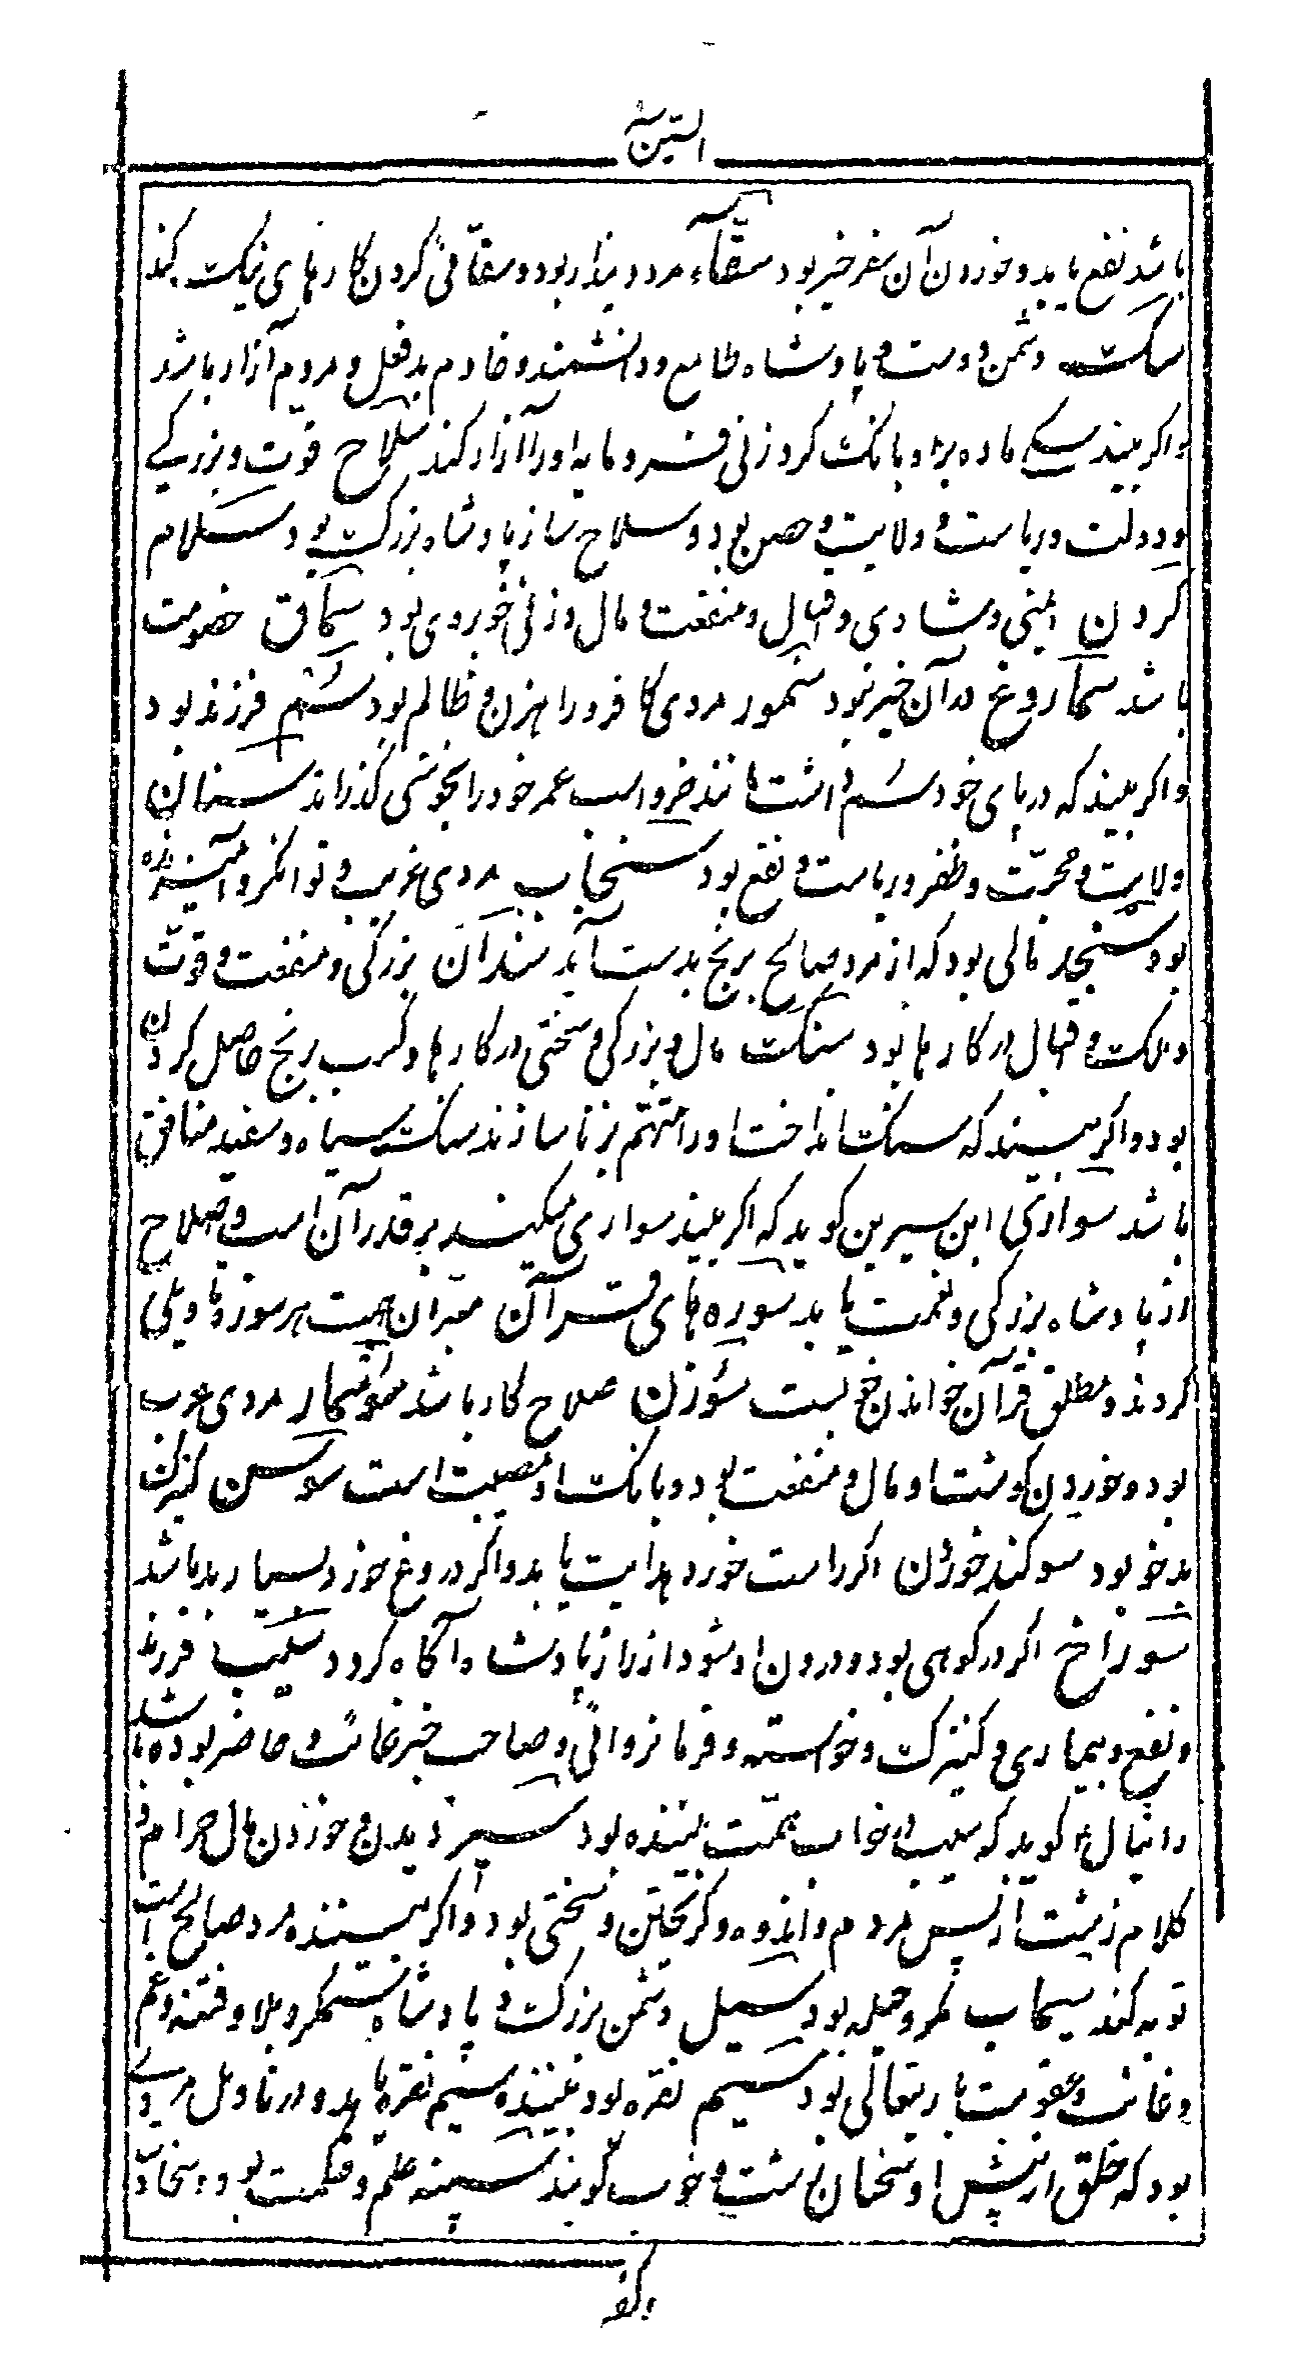 السین
باشد نفع یابد و خوردن آن سفر خیر بود سقّاء مرد دیندار بود و سقّائی کردن کارهای نیکست کند
سکت دشمن و دوست و پادشاه طامع و دانشمند و خادم بدفعل و مردم آزار باشد
و اکر بیند سک ماده برو بانکت کرد زنی فرومایه او را آزار کند سلاح قوت و بزرکی
و دولت و ریاست و ولایت و حصن بود و سلاح ساز پادشاه بزرکت بود سلام
کردن ایمنی و شادی و اقبال و منفعت و مال و زنی خوبروی بود سماق خصومت
باشد سماروغ در آن خیر نبود سمور مردی کافر و راهزن و ظالم بود سُم فرزند بود
و اکر بیند که در پای خود سُم داشت مانند خر و اسب عمر خود را بخوشی کذراند سنان
ولایت و حجّت و ظفر و ریاست و نفع بود سنجاب مردی غریب و توانکر و آمیزنده
بود سنجد مالی بود که از مرد صالح برنج بدست آید سندان بزرکی و منفعت و قوّت
و ملکت و اقبال در کارها بود سنکت مال و بزرکی و سختی در کارها و کسب برنج حاصل کردن
بود و اکر بیند که سنکت انداخت او را متهم بزنا سازند سنکت سیاه و سفید منافق
باشد سواری ابن سیرین کوید که اکر بیند سواری میکند بر قدر آن اسب و صلاح
از پادشاه بزرکی و نعمت یابد سوره‌های قرآن معبّران جهت هر سوره تاویلی
کردند و مطلق قرآن خواندن خوبست سوزن صلاح کار باشد سوسمار مردی عرب
بود و خوردن کوشت او مال و منفعت بود و بانکت او مصیبت است سوسن کنیزک
بدخو بود سوکند خوردن اکر راست خورد هدایت یابد و اکر دروغ خورد بسیار بد باشد
سوراخ اکر در کوهی بود و درون او شود از راز پادشاه آکاه کردد سیب فرزند
و نفع و بیماری و کنیزکت و خواسته و فرمانروائی و صاحب خبر غائب و حاضر بوده باشد
دانیال کوید که سیب در خواب همّت بیننده بود سیر دیدن و خوردن مال حرام و
کلام زشت از پس مردم و اندوه و کریختن و سختی بود و اکر بیننده مرد صالح است
توبه کند سیماب مکر و حیله بود سیل دشمن بزرکت و پادشاه ستمکر و بلا و فتنه و غم
و عقوبت باریتعالی بود سیم نقره بود بیننده سیم نقره یابد و در تاویل مردی
بود که خلق از پس او سخنان زشت و خوب کویند سینه علم و حکمت بود و سخاوت